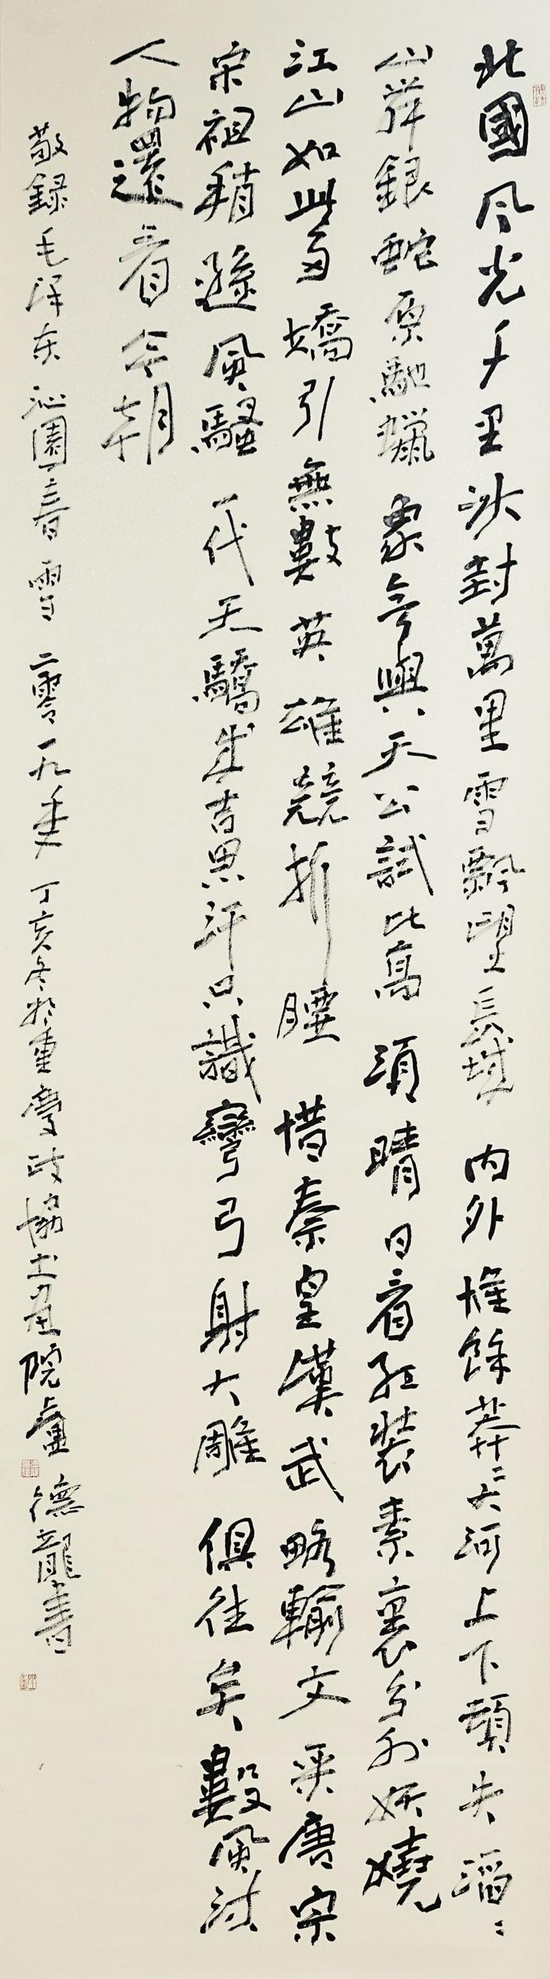 北國风光千里冰封萬里雪飄望長城内外惟餘莽〻大河上下頓失滔〻
山舞銀蛇原馳蠟象欲與天公試比高須晴日看红装素裹分外妖嬈
江山如此多嬌引無數英雄競折腰惜秦皇漢武略輸文采唐宗
宋祖稍遜風騷一代天驕成吉思汗只識彎弓射大雕俱往矣數風流
人物還看今朝
敬録毛泽东沁園春雪二零一九年丁亥冬於重慶政協书画院盧德龍書